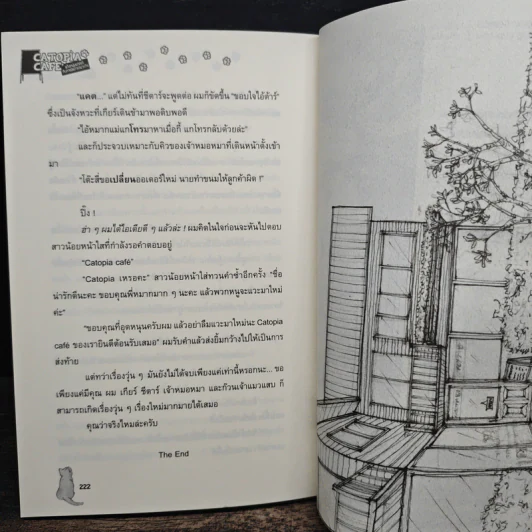 CATOPIA
CAFE
"แคต..." แต่ไม่ทันที่ชีตาร์จะพูดต่อ ผมก็ขัดขึ้น "ขอบใจไอ้ต้าร์"
ซึ่งเป็นจังหวะที่เกียร์เดินเข้ามาพอดิบพอดี
"ไอ้หมากแม่แกโทรมาหาเมื่อกี้ แกโทรกลับด้วยล่ะ"
และก็ประจวบเหมาะกับคิวของเจ้าหมอหมาที่เดินหน้าตั้งเข้า
มา
"โต๊ะสี่ขอเปลี่ยนออเดอร์ใหม่ นายทำขนมให้ลูกค้าผิด !"
ปิ๊ง !
ฮ่า ๆ ผมได้ไอเดียดี ๆ แล้วล่ะ ! ผมคิดในใจก่อนจะหันไปตอบ
สาวน้อยหน้าใสที่กำลังรอคำตอบอยู่
"Catopia café"
"Catopia เหรอคะ" สาวน้อยหน้าใสทวนคำซ้ำอีกครั้ง "ชื่อ
น่ารักดีนะคะ ขอบคุณพี่หมากมาก ๆ นะคะ แล้วพวกหนูจะแวะมาใหม่
ค่ะ"
"ขอบคุณที่อุดหนุนครับผม แล้วอย่าลืมแวะมาใหม่นะ Catopia
café ของเรายินดีต้อนรับเสมอ" ผมรับคำแล้วส่งยิ้มกว้างไปให้เป็นการ
ส่งท้าย
แต่ทว่าเรื่องวุ่น ๆ มันยังไม่ได้จบเพียงแค่เท่านี้หรอกนะ... ขอ
เพียงแค่มีคุณ ผม เกียร์ ชีตาร์ เจ้าหมอหมา และก๊วนเจ้าแมวแสบ ก็
สามารถเกิดเรื่องวุ่น ๆ เรื่องใหม่มากมายได้เสมอ
คุณว่าจริงไหมล่ะครับ
The End
222